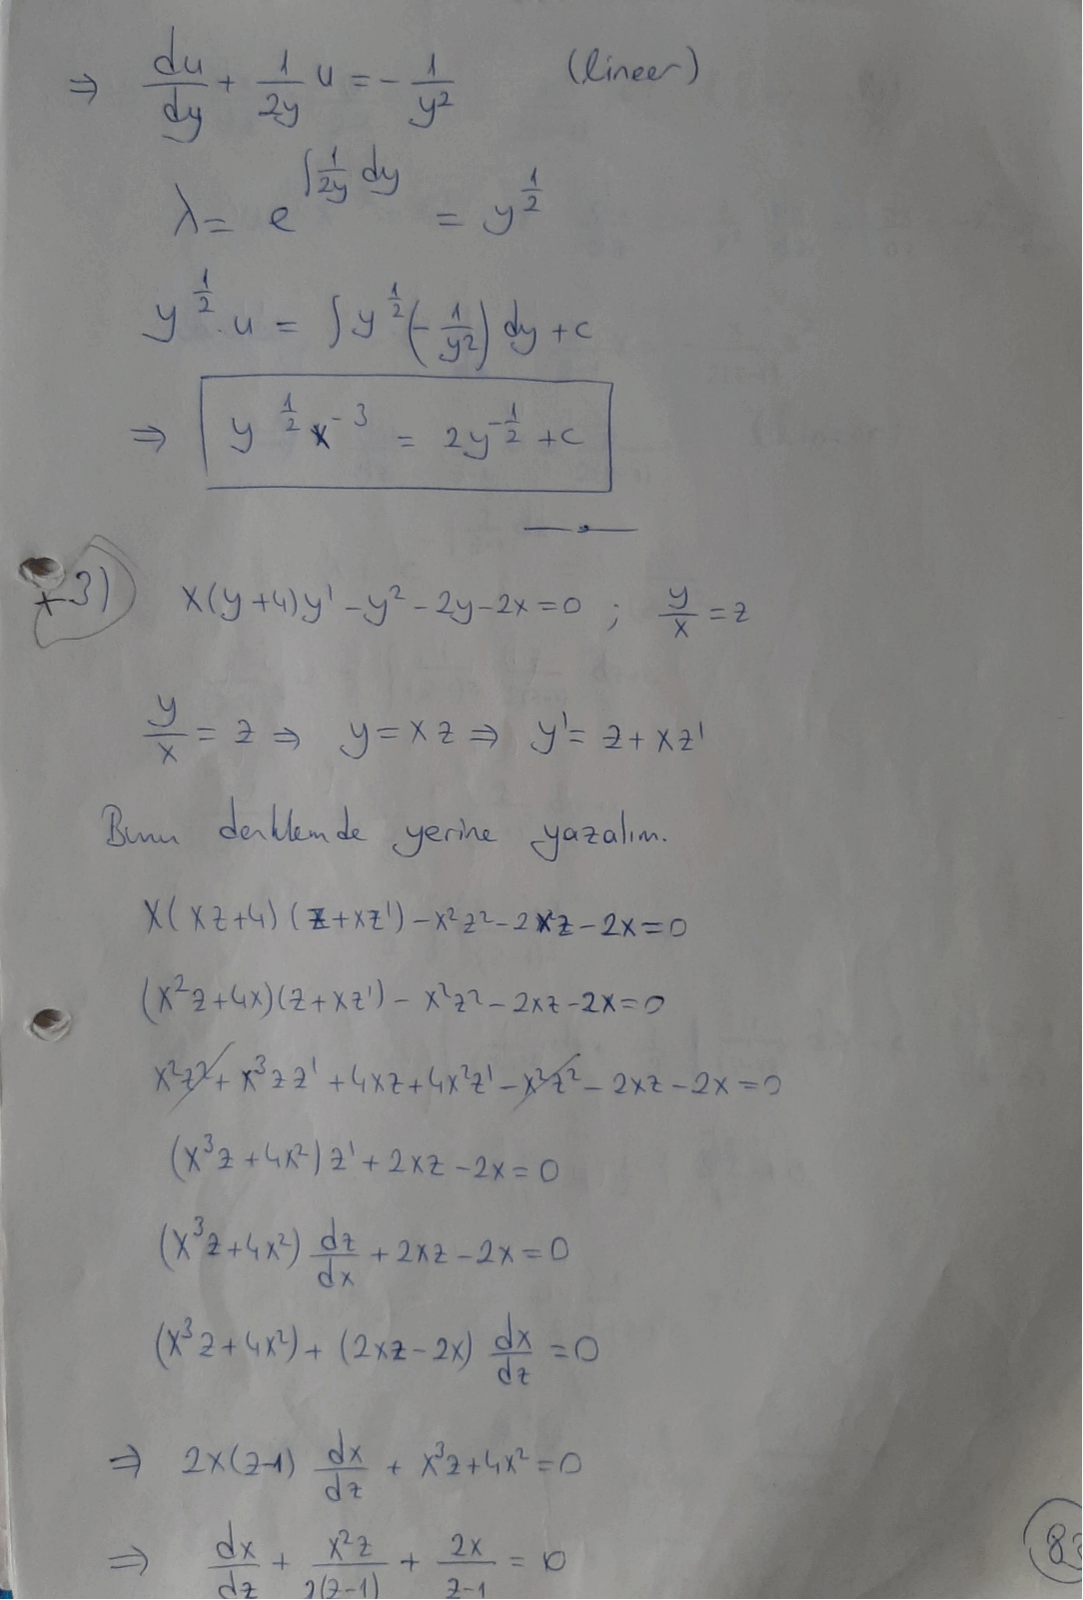 ⇒ du/dy + 1/2y u = - 1/y² (lineer)
λ = e^∫ 1/2y dy = y^1/2
y^1/2 . u = ∫ y^1/2 (- 1/y²) dy + c
⇒ y^1/2 x^-3 = 2y^-1/2 + c
+3) x(y+4)y' - y² - 2y - 2x = 0 ; y/x = z
y/x = z ⇒ y = xz ⇒ y' = z + xz'
Bunu denklemde yerine yazalım.
x(xz+4)(z+xz') - x²z² - 2xz - 2x = 0
(x²z+4x)(z+xz') - x²z² - 2xz - 2x = 0
x²z² + x³zz' + 4xz + 4x²z' - x²z² - 2xz - 2x = 0
(x³z+4x²)z' + 2xz - 2x = 0
(x³z+4x²) dz/dx + 2xz - 2x = 0
(x³z+4x²) + (2xz-2x) dx/dz = 0
⇒ 2x(z-1) dx/dz + x³z + 4x² = 0
⇒ dx/dz + x²z/2(z-1) + 2x/z-1 = 0